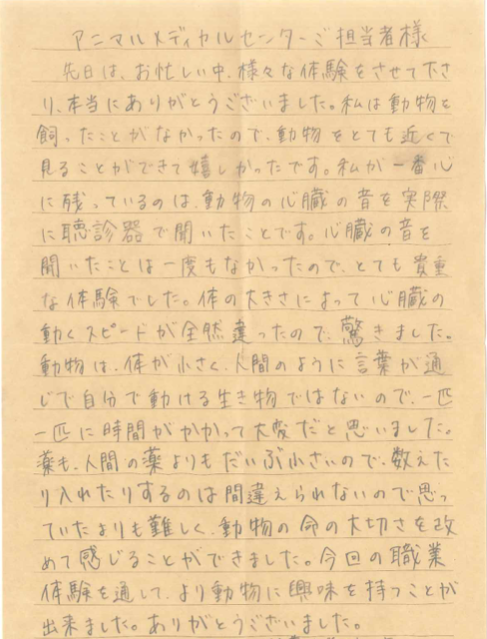 アニマルメディカルセンターご担当者様
先日は、お忙しい中、様々な体験をさせて下さ
り、本当にありがとうございました。私は動物を
飼ったことがなかったので、動物をとても近くで
見ることができて嬉しかったです。私が一番心
に残っているのは、動物の心臓の音を実際
に聴診器で聞いたことです。心臓の音を
聞いたことは一度もなかったので、とても貴重
な体験でした。体の大きさによって心臓の
動くスピードが全然違ったので、驚きました。
動物は、体が小さく、人間のように言葉が通
じて自分で動ける生き物ではないので、一匹
一匹に時間がかかって大変だと思いました。
薬も、人間の薬よりもだいぶ小さいので、数えた
り入れたりするのは間違えられないので思っ
ていたよりも難しく、動物の命の大切さを改
めて感じることができました。今回の職業
体験を通して、より動物に興味を持つことが
出来ました。ありがとうございました。